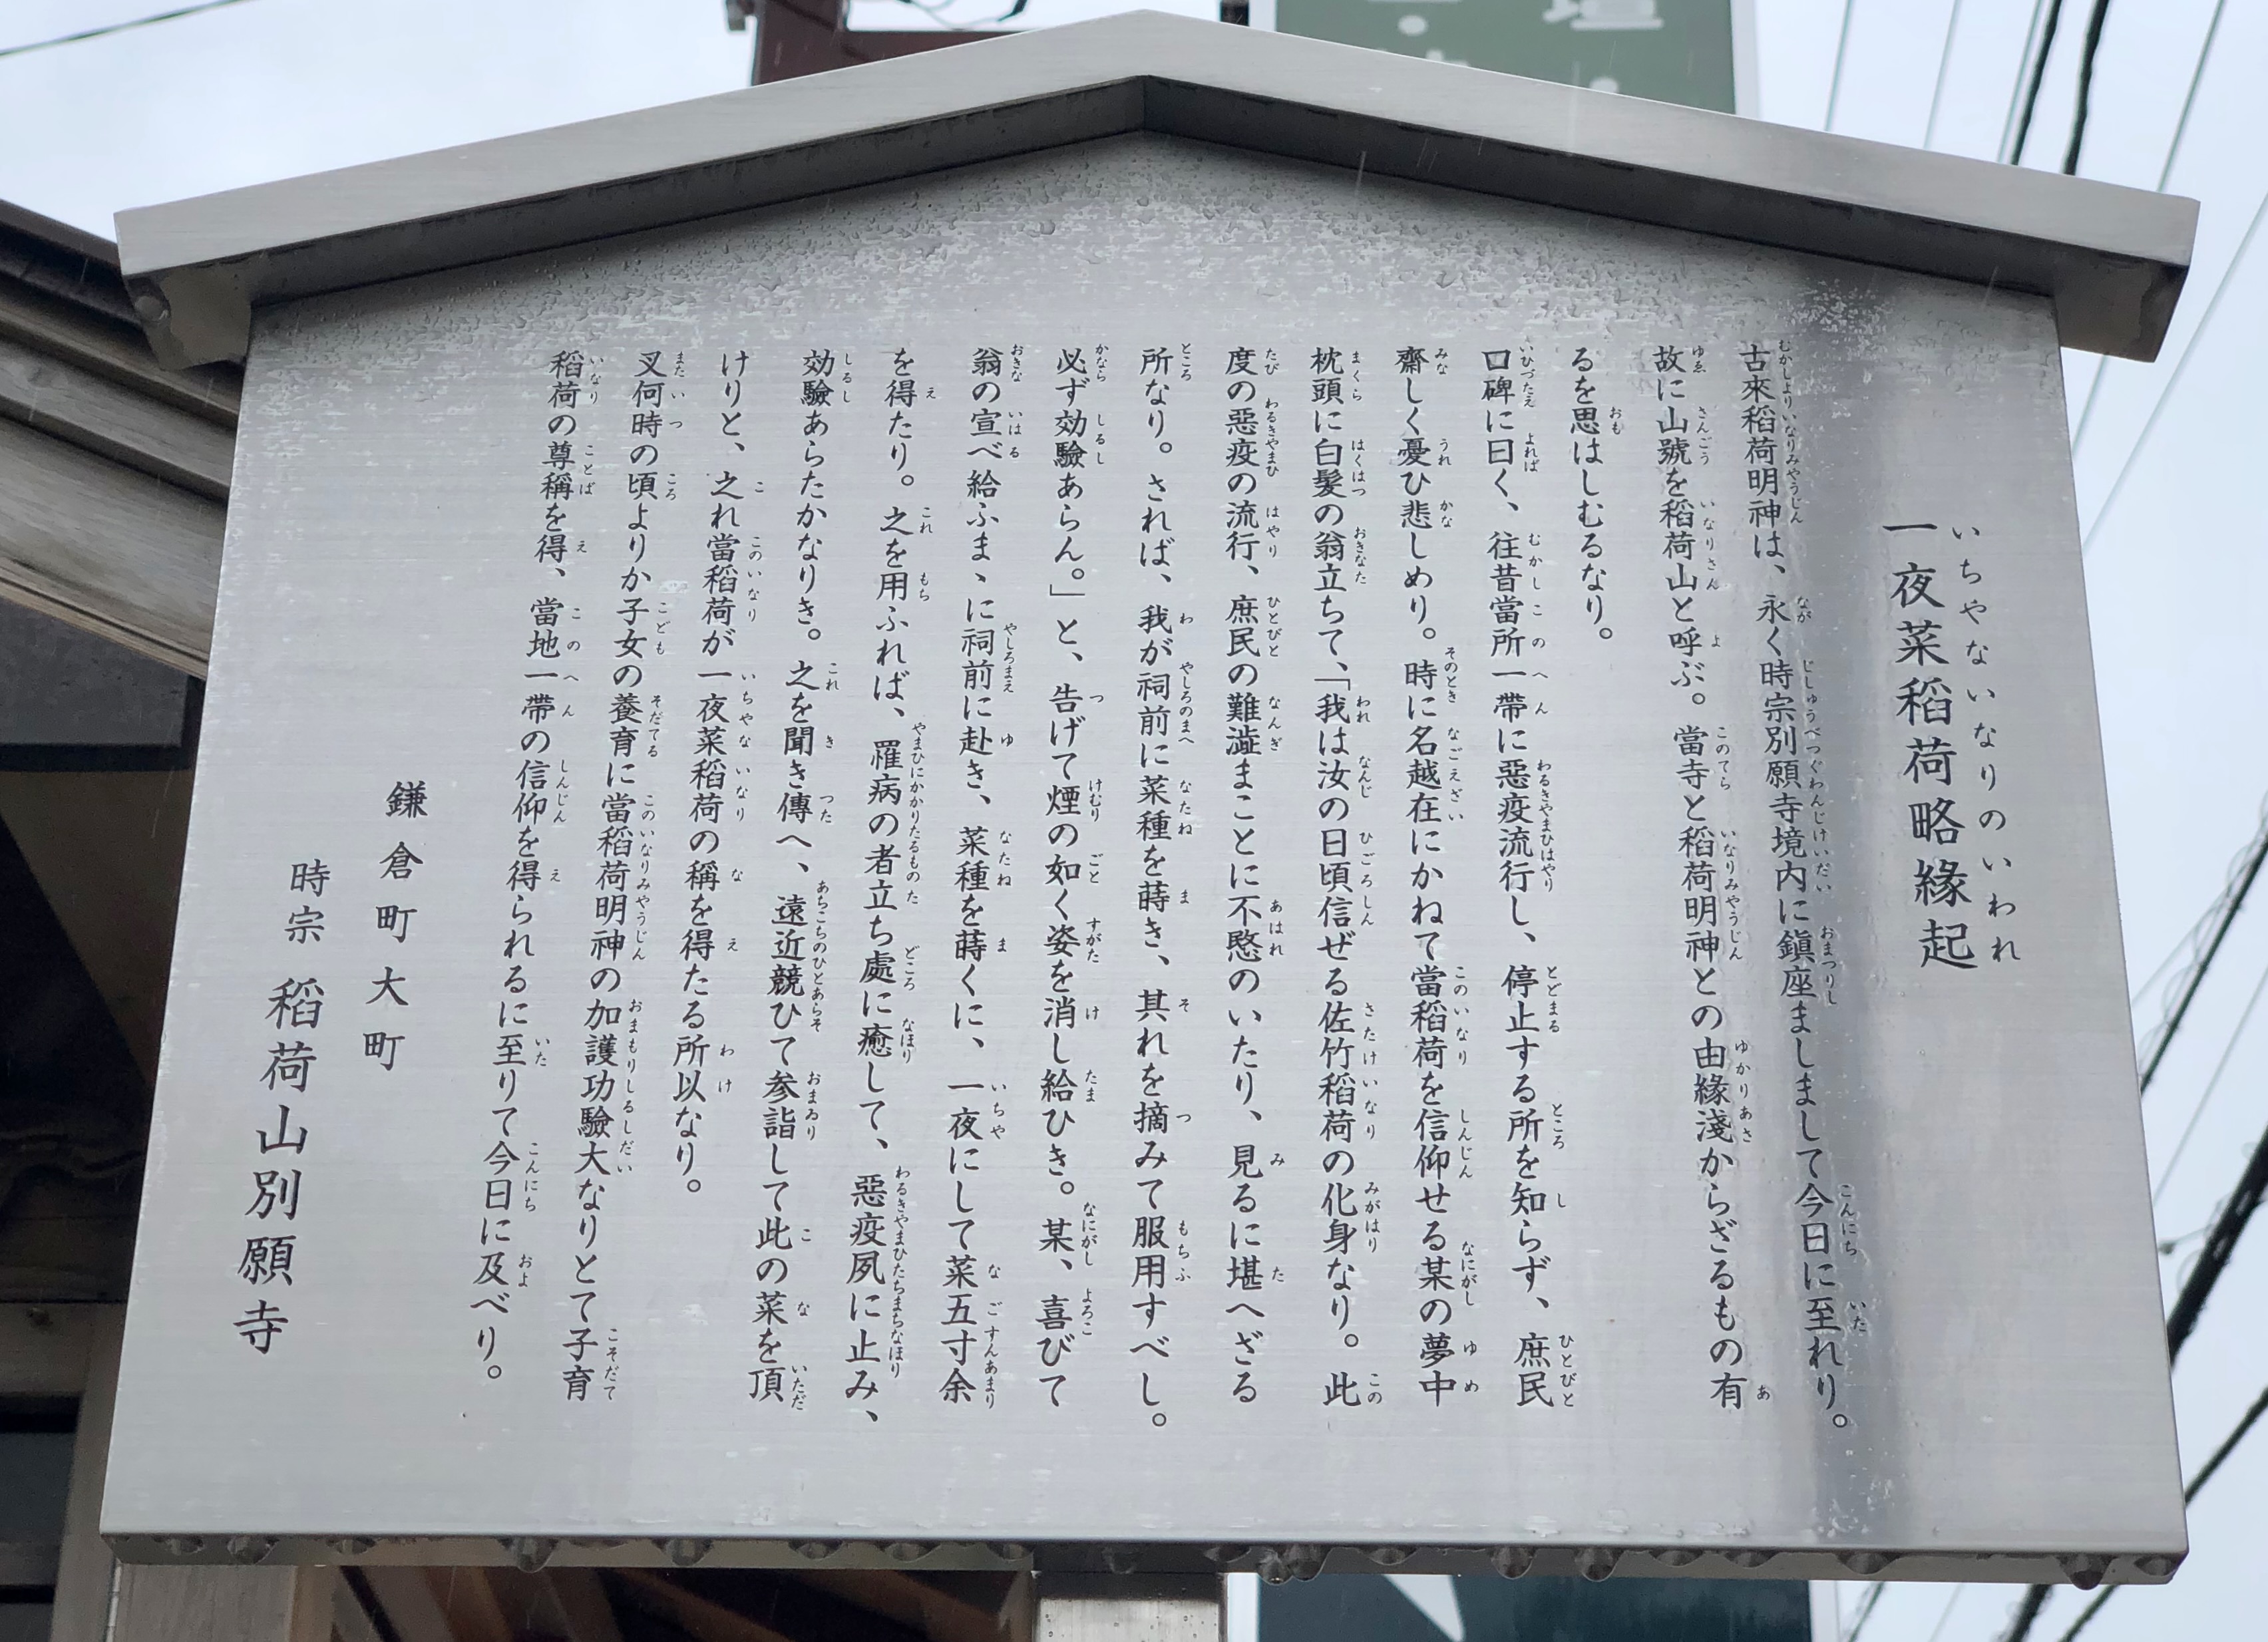 一夜菜稲荷略緣起
いちやないなりのいわれ
古來稲荷明神は、永く時宗別願寺境内に鎭座ましまして今日に至れり。
故に山號を稲荷山と呼ぶ。當寺と稲荷明神との由緣淺からざるもの有
るを思はしむるなり。
口碑に曰く、往昔當所一帶に惡疫流行し、停止する所を知らず、庶民
齋しく憂ひ悲しめり。時に名越在にかねて當稲荷を信仰せる某の夢中
枕頭に白髮の翁立ちて、「我は汝の日頃信ぜる佐竹稲荷の化身なり。此
度の惡疫の流行、庶民の難澁まことに不愍のいたり、見るに堪へざる
所なり。されば、我が祠前に菜種を蒔き、其れを摘みて服用すべし。
必ず効驗あらん。」と、告げて煙の如く姿を消し給ひき。某、喜びて
翁の宣べ給ふまゝに祠前に赴き、菜種を蒔くに、一夜にして菜五寸余
を得たり。之を用ふれば、羅病の者立ち處に癒して、惡疫夙に止み、
効驗あらたかなりき。之を聞き傳へ、遠近競ひて参詣して此の菜を頂
けりと、之れ當稲荷が一夜菜稲荷の稱を得たる所以なり。
又何時の頃よりか子女の養育に當稲荷明神の加護功驗大なりとて子育
稲荷の尊稱を得、當地一帶の信仰を得られるに至りて今日に及べり。
鎌倉町大町
時宗 稲荷山別願寺